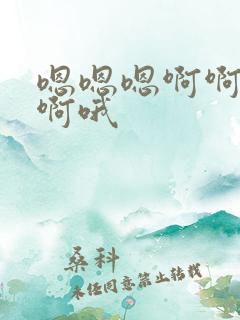 嗯嗯嗯啊啊
啊哦
桑科
未经同意禁止转载